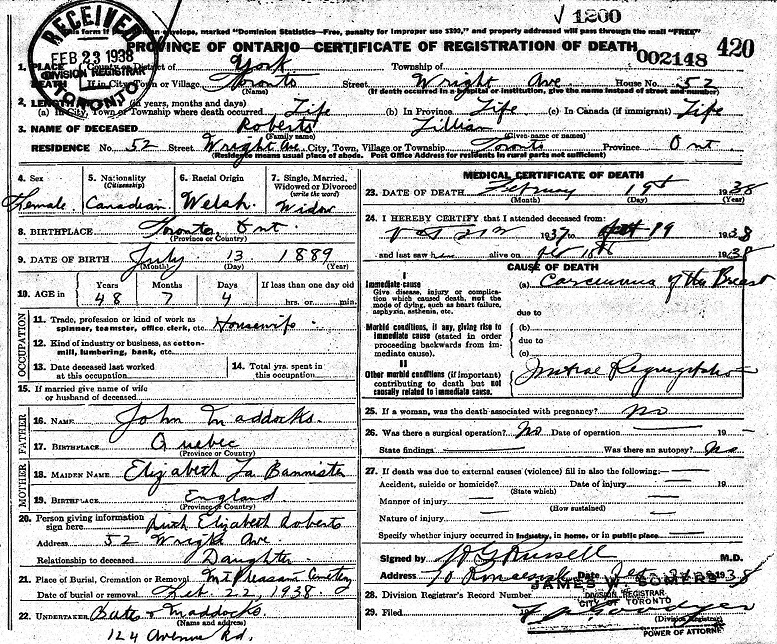 √ 1200
RECEIVED
FEB 23 1938
DIVISION REGISTRAR
TORONTO
marked "Dominion Statistics—Free, penalty for improper use $300," and properly addressed will pass through the mail "FREE"
PROVINCE OF ONTARIO—CERTIFICATE OF REGISTRATION OF DEATH
002148 420
1. PLACE County or District of York Township of
DEATH If in City, Town or Village Toronto Street Wright Ave House No. 52
(Name) (If death occurred in a hospital or institution, give the name instead of street and number)
2. LENGTH (in years, months and days)
(a) In City, Town or Township where death occurred Life (b) In Province Life (c) In Canada (if immigrant) Life
3. NAME OF DECEASED Roberts Lillian
(Family name) (Given name or names)
RESIDENCE No. 52 Street Wright Ave. City, Town, Village or Township Toronto Province Ont.
(Residence means usual place of abode. Post Office Address for residents in rural parts not sufficient)
4. Sex Female
5. Nationality (Citizenship) Canadian
6. Racial Origin Welsh
7. Single, Married, Widowed or Divorced (write the word) Widow
8. BIRTHPLACE Toronto, Ont.
(Province or Country)
9. DATE OF BIRTH July 13 1889
(Month) (Day) (Year)
10. AGE in Years Months Days If less than one day old
48 7 4 hrs. or min.
OCCUPATION
11. Trade, profession or kind of work as spinner, teamster, office clerk, etc. Housewife
12. Kind of industry or business, as cotton-mill, lumbering, bank, etc.
13. Date deceased last worked at this occupation
14. Total yrs. spent in this occupation
15. If married give name of wife or husband of deceased
FATHER
16. NAME John Maddocks.
17. BIRTHPLACE Quebec
(Province or Country)
MOTHER
18. MAIDEN NAME Elizabeth La Bannister
19. BIRTHPLACE England
(Province or Country)
20. Person giving information sign here Ruth Elizabeth Roberts
Address 52 Wright Ave.
Relationship to deceased Daughter
21. Place of Burial, Cremation or Removal Mt Pleasant Cemetery
Date of burial or removal Feb. 22, 1938
22. UNDERTAKER Bates & Maddocks
(Name and address)
124 Avenue Rd.
MEDICAL CERTIFICATE OF DEATH
23. DATE OF DEATH February 19th 1938
(Month) (Day) (Year)
24. I HEREBY CERTIFY that I attended deceased from:
1937 to 19 1938
and last saw her alive on Feb 18th 1938
CAUSE OF DEATH
I
Immediate cause (a) Carcinoma of the Breast
Give disease, injury or complication which caused death, not the mode of dying, such as heart failure, asphyxia, asthenia, etc.
due to
Morbid conditions, if any, giving rise to immediate cause (stated in order proceeding backwards from immediate cause).
(b)
due to
(c)
II
Other morbid conditions (if important) contributing to death but not causally related to immediate cause.
Mitral Regurgitation
25. If a woman, was the death associated with pregnancy? no
26. Was there a surgical operation? No Date of operation 19
State findings Was there an autopsy? No
27. If death was due to external causes (violence) fill in also the following:—
Accident, suicide or homicide? Date of injury 19
(State which)
Manner of injury
(How sustained)
Nature of injury
Specify whether injury occurred in industry, in home, or in public place
Signed by Russell M.D.
Address Date 1938
JAMES W. SOMERS
28. Division Registrar's Record Number
DIVISION REGISTRAR
CITY OF TORONTO
29. Filed 19
(Division Registrar)
POWER OF ATTORNEY